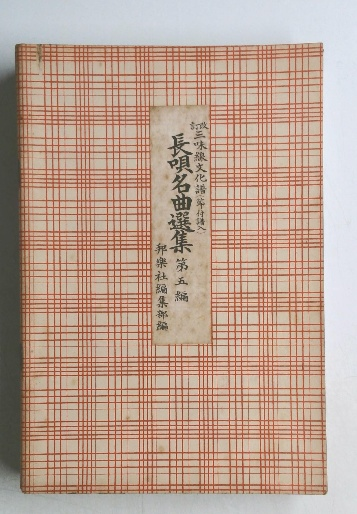 改訂三味線文化譜(節付譜入)
長唄名曲選集第五編
邦樂社編集部編